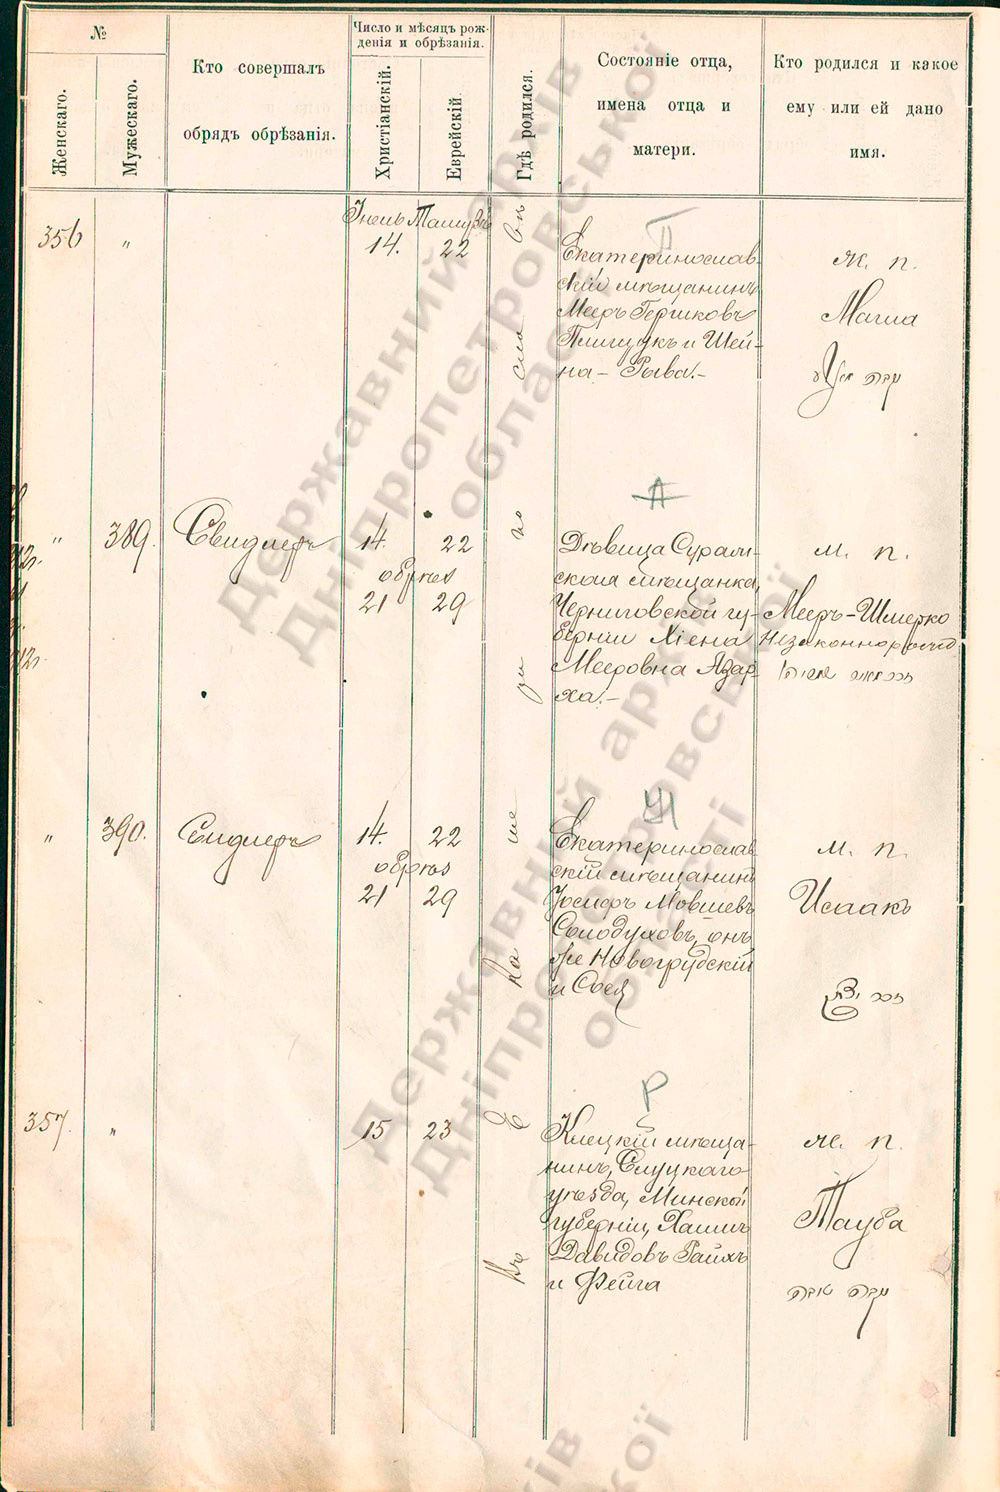 №
Женскаго.
Мужескаго.
Кто совершалъ
обрядъ обрѣзанія.
Число и мѣсяцъ рож-
денія и обрѣзанія.
Христіанскій.
Еврейскій
Гдѣ родился.
Состояніе отца,
имена отца и
матери.
Кто родился и какое
ему или ей дано
имя.
Іюнь Тамузъ
356 " 14. 22
П
Екатеринослав-
скій мѣщанинъ
Мееръ Гершковъ
Пищукъ и Шей-
на-Рыва.-
ж. п.
Маша
" 389. Свидлеръ 14. 22
обрѣз
21 29
А
Дѣвица Суражс-
ская мѣщанка,
Черниговской гу-
берніи Хіена
Мееровна Азар-
ха.-
м. п.
Мееръ-Шмерко
Незаконнорожд.
" 390. Свидлеръ 14. 22
обрѣз
21 29
Екатеринослав
скій мѣщанинъ
Іосифъ Мовшевъ
Солодуховъ, онъ
же Новогрудскій
и Сося
м. п.
Исаакъ
זכר יצחק
357. " 15 23
Р
Клецкій мѣща-
нинъ, Слуцкаго
уѣзда, Минской
губерніи, Хаимъ
Давидовъ Райхъ
и Фейга
ж. п.
Тауба
נקבה טובה
Въ Екатеринославѣ
Державний архів
Дніпропетровської
області
Державний архів
Дніпропетровської
області